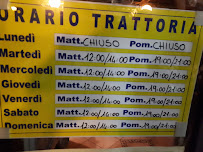 ORARIO TRATTORIA
Lunedì Matt. CHIUSO Pom. CHIUSO
Martedì Matt. 12:00/14:00 Pom. 19:00/21:00
Mercoledì Matt. 12:00/14:00 Pom. 19:00/21:00
Giovedì Matt. 12:00/14:00 Pom. 19:00/21:00
Venerdì Matt. 12:00/14:00 Pom. 19:00/21:00
Sabato Matt. 12:00/14:00 Pom. 19:00/21:00
Domenica Matt. 12:00/14:00 Pom. 19:00/21:00